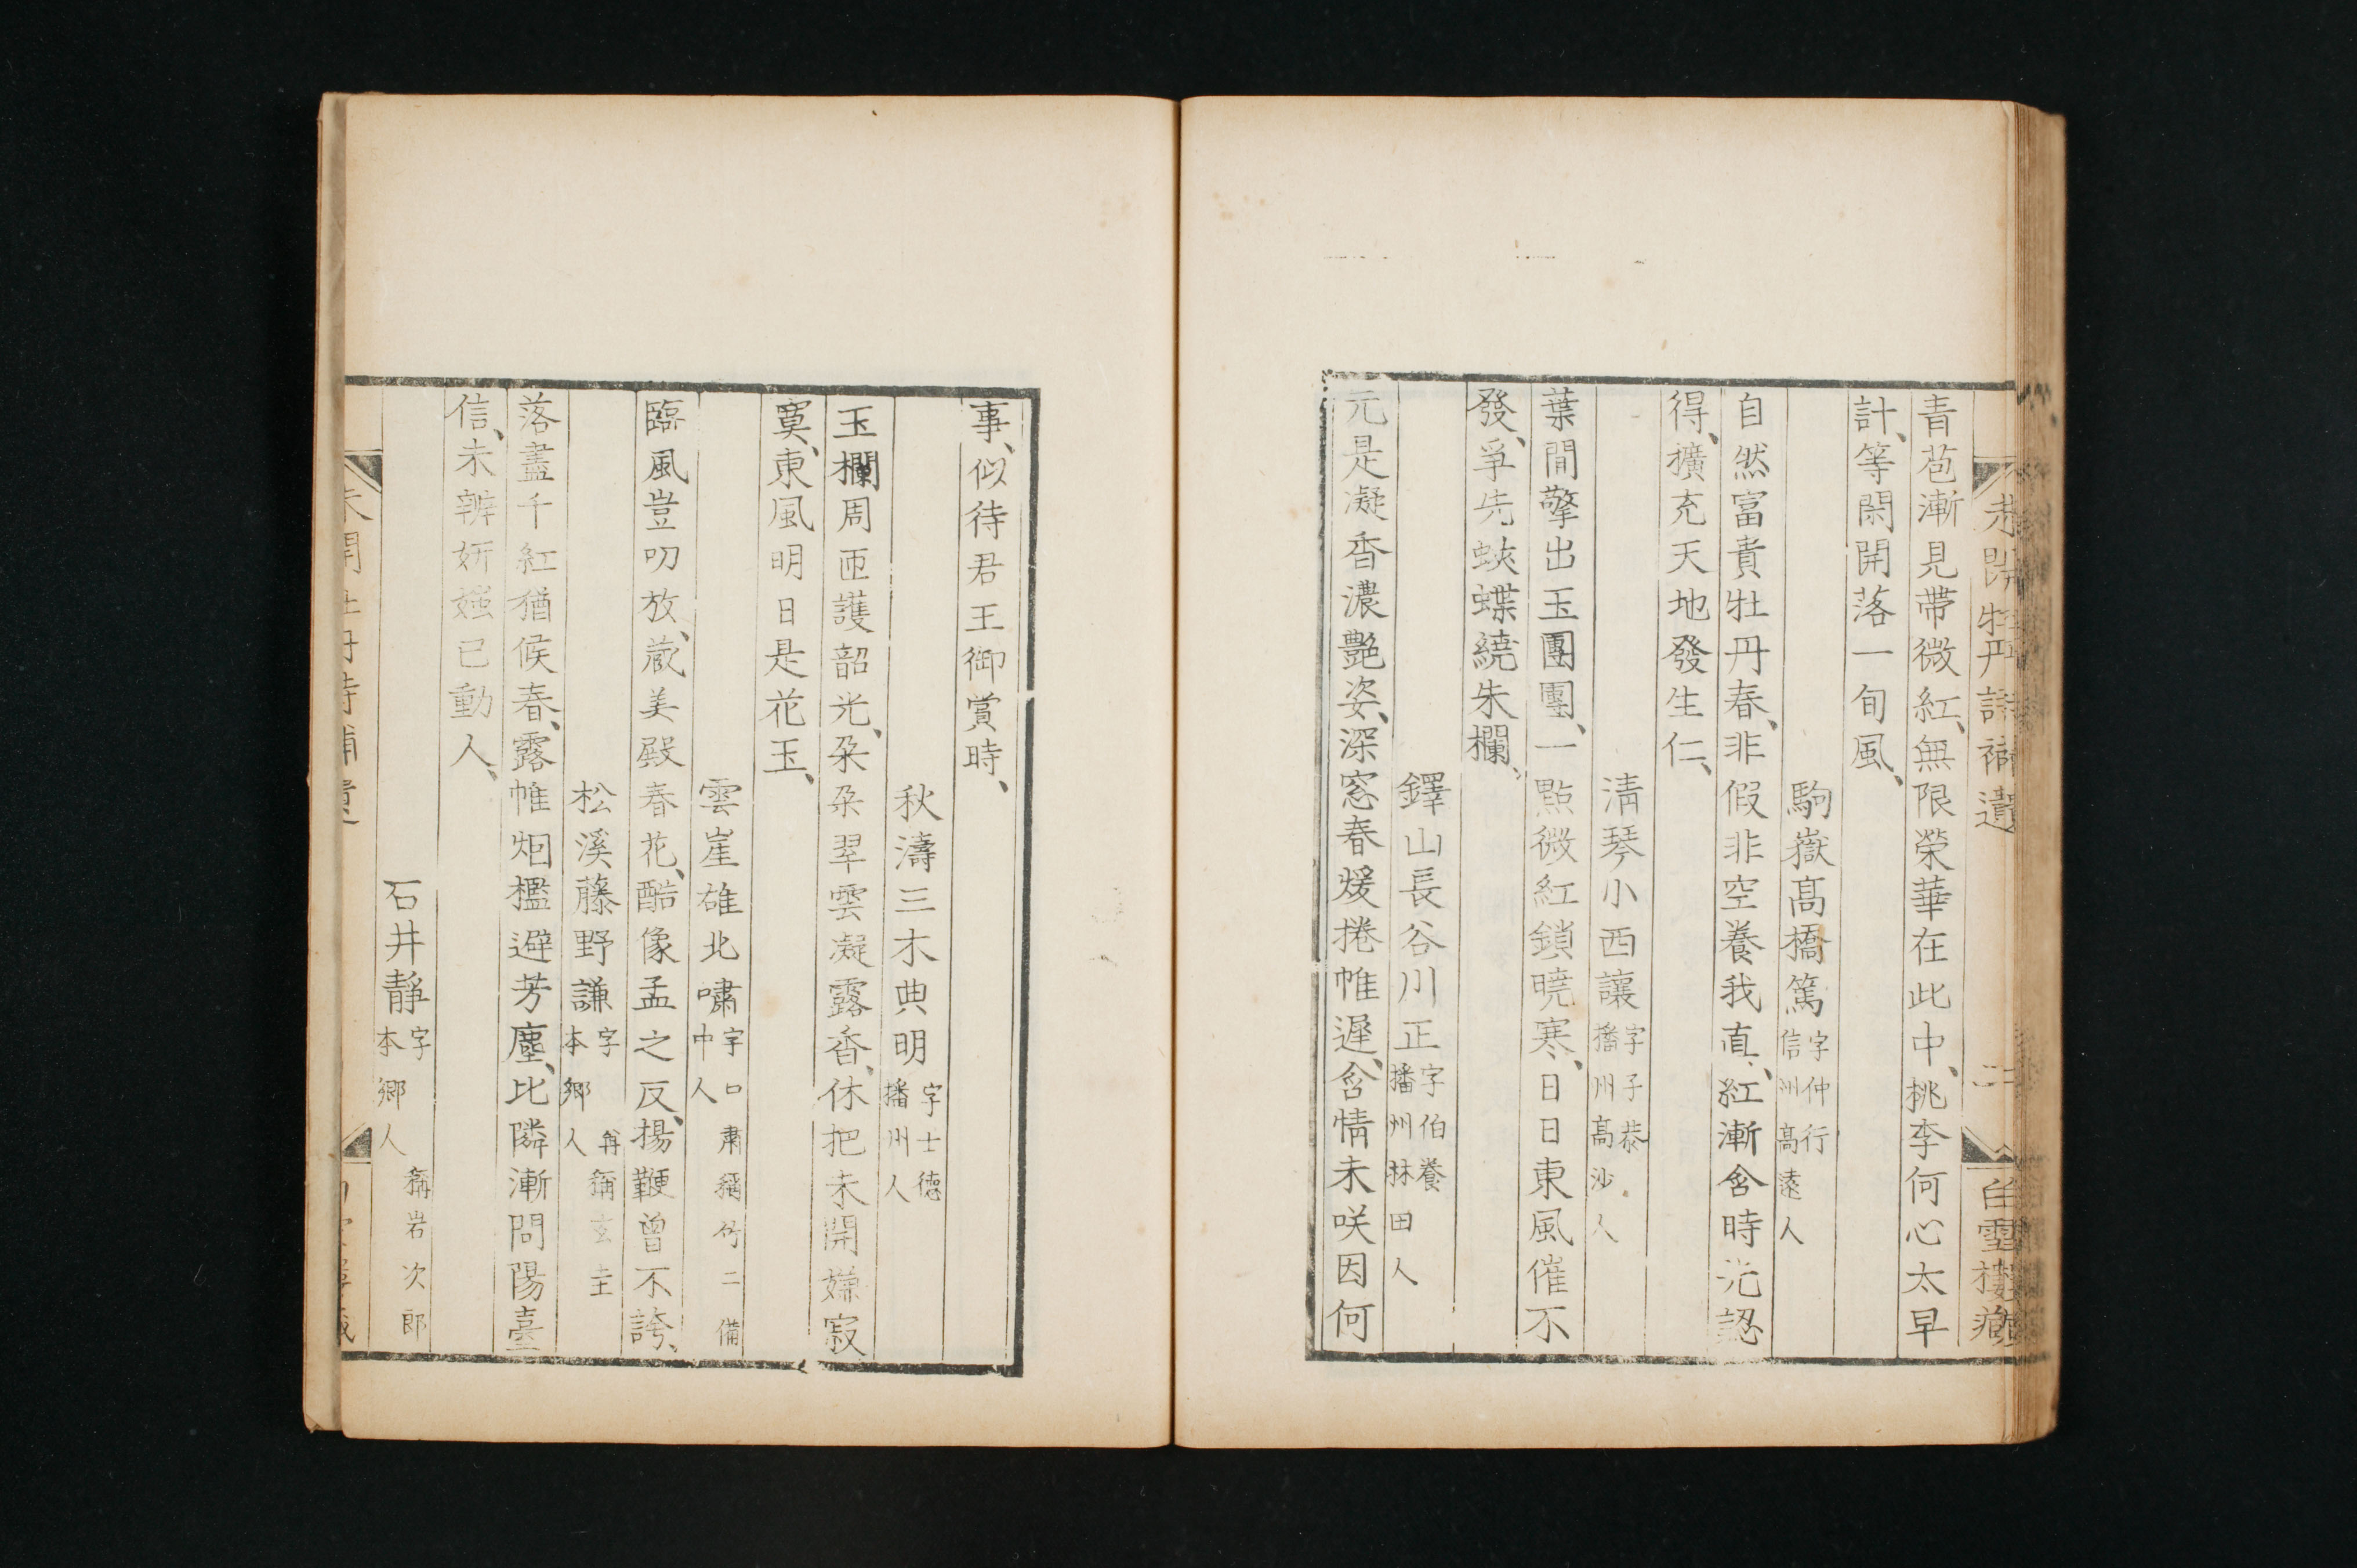 未開牡丹詩補遺 二 白雪樓藏
青苞漸見帶微紅、無限榮華在此中、桃李何心太早
計、等閑開落一旬風、
駒嶽髙橋篤 字仲行 信州髙遠人
自然富貴牡丹春、非假非空養我真、紅漸含時先認
得、擴充天地發生仁、
清琴小西讓 字子恭 播州髙沙人
葉間擎出玉團團、一點微紅鎖曉寒、日日東風催不
發、爭先蛺蝶繞朱欄、
鐸山長谷川正 字伯養 播州林田人
元是凝香濃艷姿、深窓春煖捲帷遲、含情未咲因何
事、似待君王御賞時、
秋濤三木典明 字士德 播州人
玉欄周匝護韶光、朶朶翠雲凝露香、休把未開嫌寂
寞、東風明日是花王、
雲崖雄北嘯 字口肅稱竹二備中人
臨風豈叨放、蔵美殿春花、酷像孟之反、揚鞭曾不誇、
松溪藤野謙 字 稱玄圭 本鄉人
落盡千紅猶候春、露帷烟檻避芳塵、比隣漸問陽臺
信、未辨妍媸已動人、
石井靜 字 稱岩次郎 本鄉人